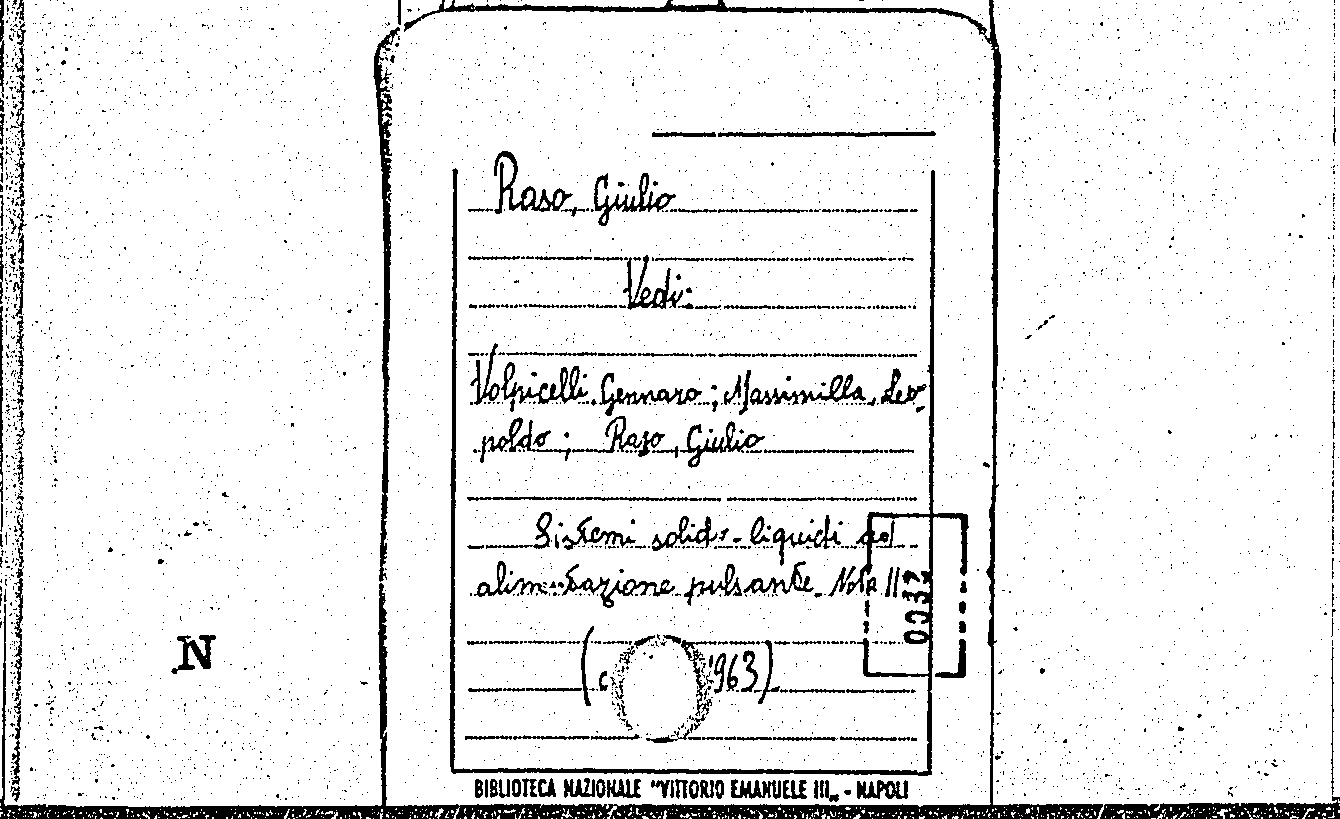 Raso, Giulio
Vedi:
Volpicelli, Gennaro; Massimilla, Leo-
poldo; Raso, Giulio
Sistemi solido-liquidi ad
alimentazione pulsante. Nota II
0037
N
(c 1963)
BIBLIOTECA NAZIONALE "VITTORIO EMANUELE III„ - NAPOLI